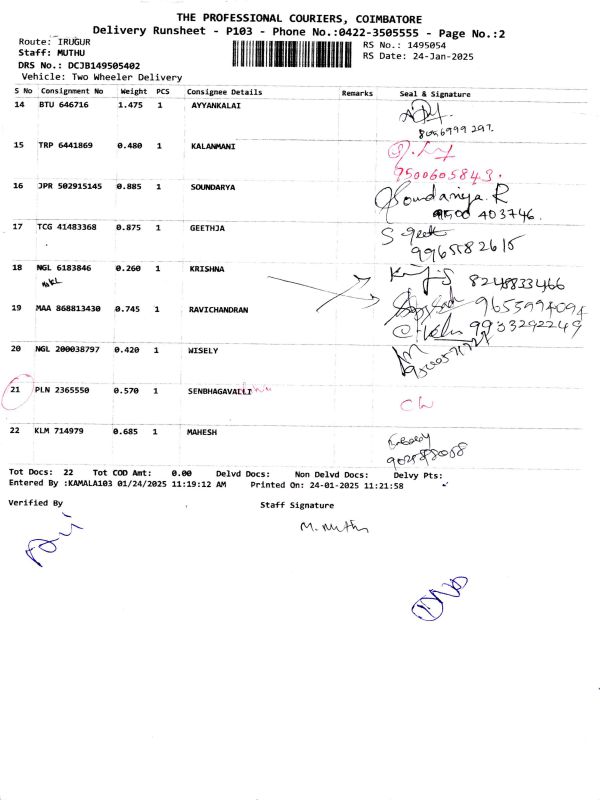 THE PROFESSIONAL COURIERS, COIMBATORE
Delivery Runsheet - P103 - Phone No.:0422-3505555 - Page No.:2
Route: IRUGUR
RS No.: 1495054
Staff: MUTHU
RS Date: 24-Jan-2025
DRS No.: DCJB149505402
Vehicle: Two Wheeler Delivery
S No Consignment No Weight PCS Consignee Details Remarks Seal & Signature
14 BTU 646716 1.475 1 AYYANKALAI
8056999297.
15 TRP 6441869 0.480 1 KALANMANI
9500605843.
16 JPR 502915145 0.885 1 SOUNDARYA
Soundariya. R
9500 403746.
17 TCG 41483368 0.875 1 GEETHJA
S geeth
9965582615
18 NGL 6183846 0.260 1 KRISHNA
8248833466
19 MAA 868813430 0.745 1 RAVICHANDRAN
9655994094
9933292249
20 NGL 200038797 0.420 1 WISELY
21 PLN 2365550 0.570 1 SENBHAGAVALLI
22 KLM 714979 0.685 1 MAHESH
Tot Docs: 22 Tot COD Amt: 0.00 Delvd Docs: Non Delvd Docs: Delvy Pts:
Entered By :KAMALA103 01/24/2025 11:19:12 AM Printed On: 24-01-2025 11:21:58
Verified By
Staff Signature
M. Muthu